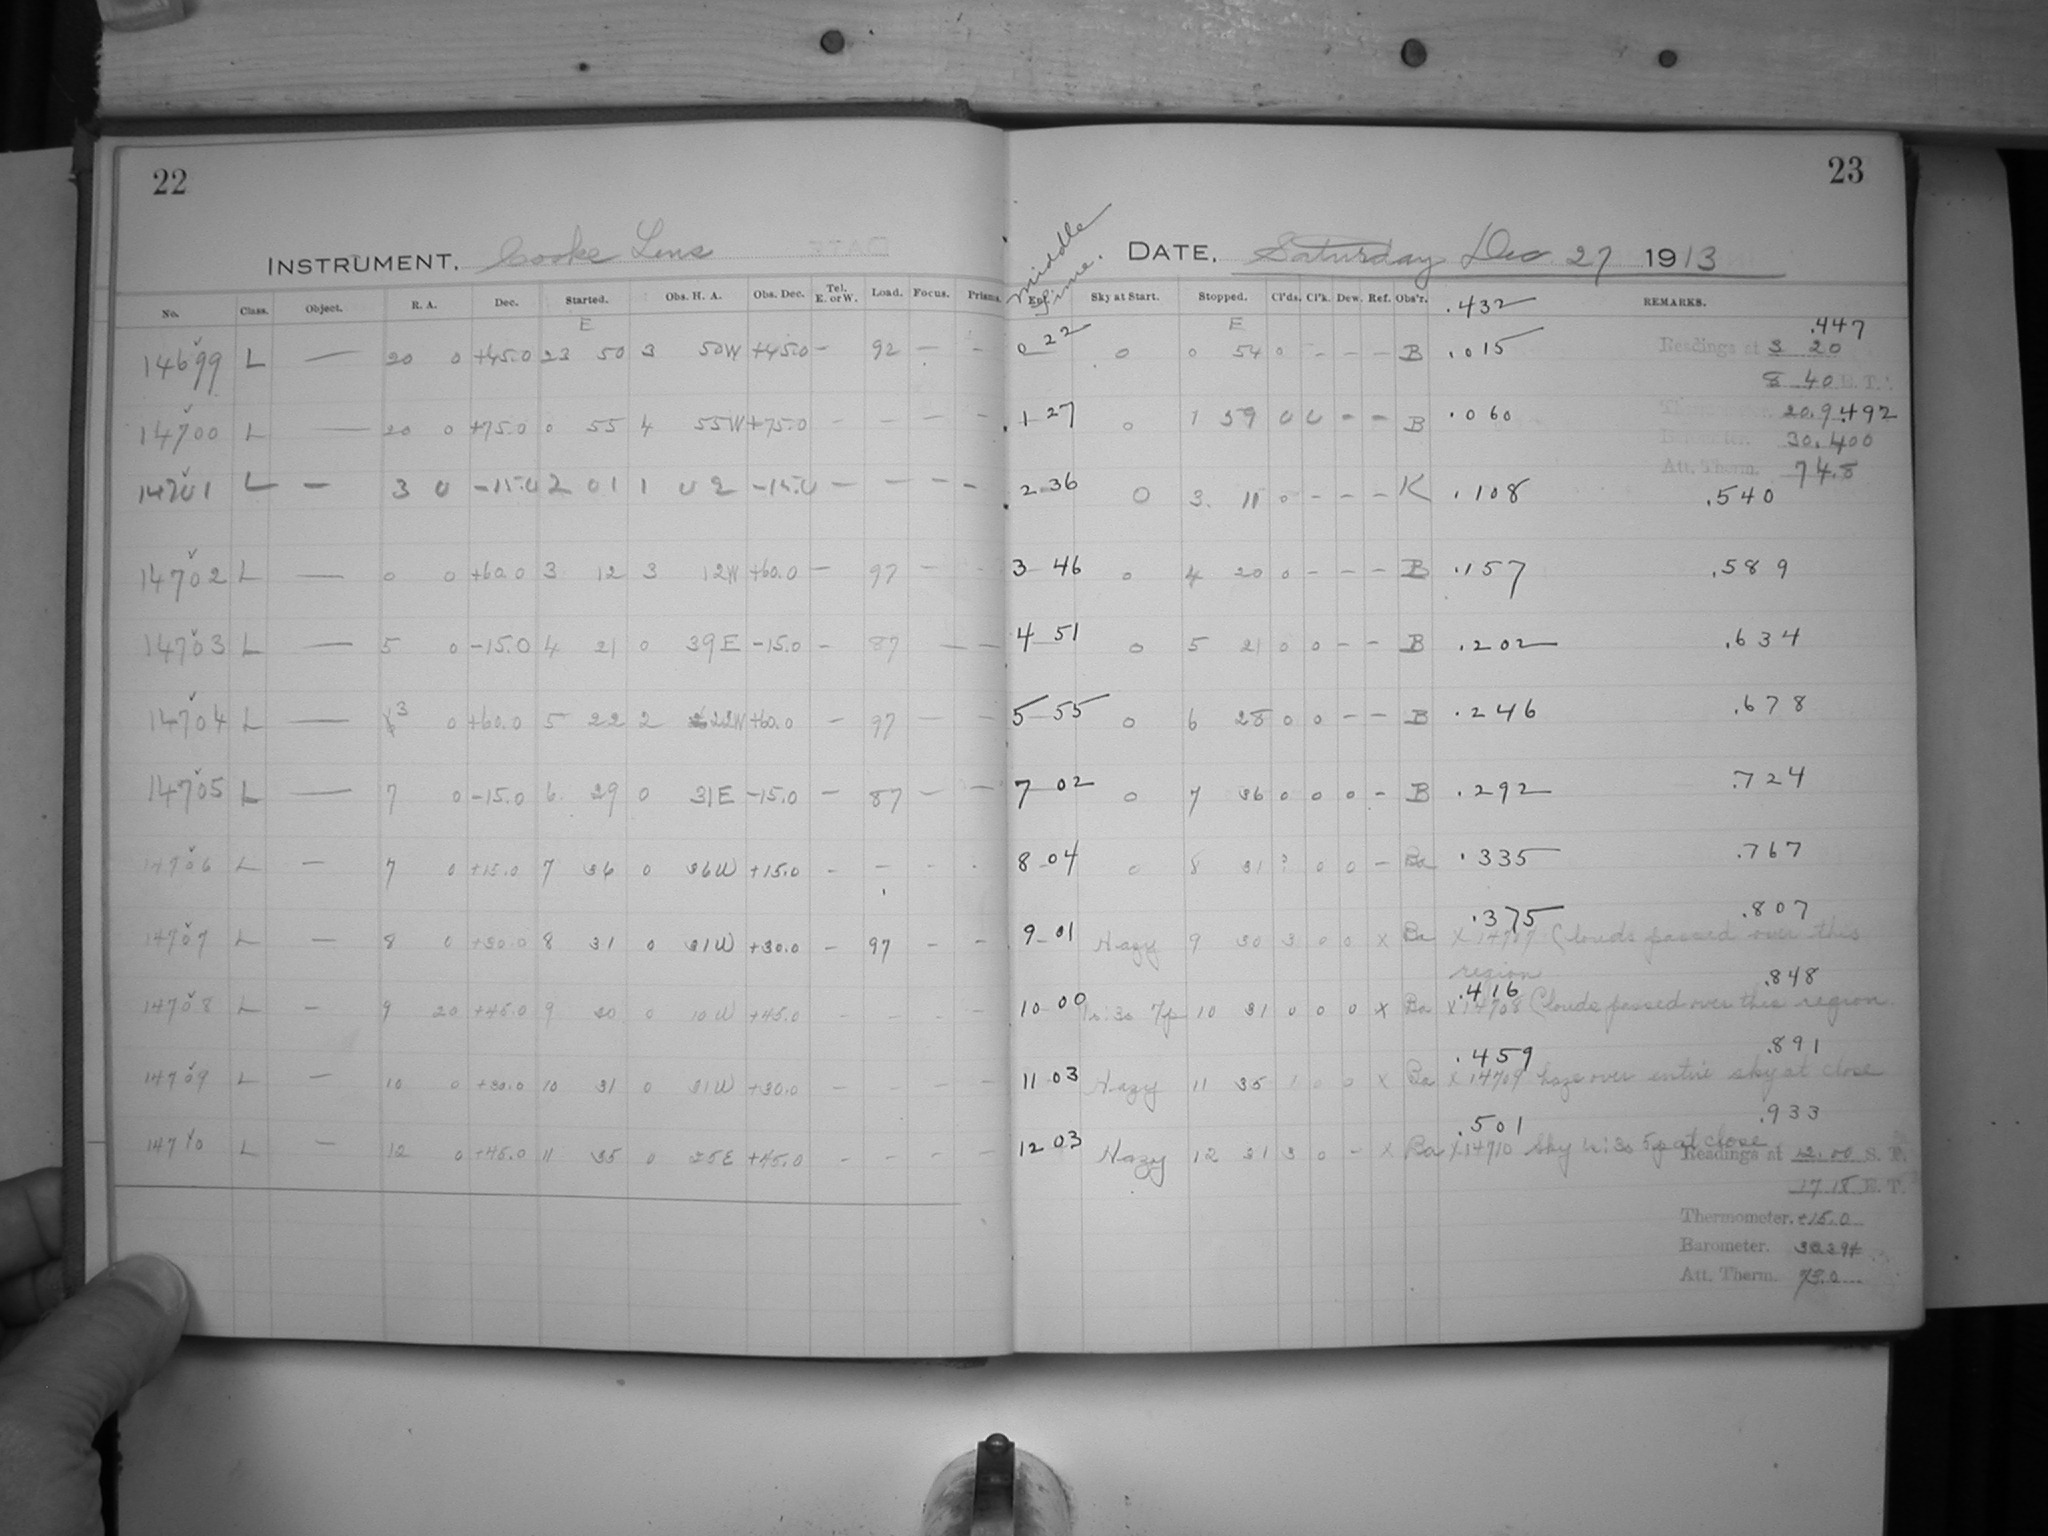 22
23
INSTRUMENT. Cooke Lens
Middle Time.
DATE. Saturday Dec 27 1913
No. Class. Object. R. A. Dec. Started. Obs. H. A. Obs. Dec. Tel. E. or W. Load. Focus. Prisms. Exp. Sky at Start. Stopped. Cl'ds. Cl'k. Dew. Ref. Obs'r. .432 REMARKS.
E E
14699 L — 20 0 +45.0 23 50 3 50W +45.0 - 92 - - 0 22 0 0 54 0 - - - B .015 .447
Readings at 3 20
8 40 E. T.
14700 L — 20 0 +75.0 0 55 4 55W +75.0 - - - - 1 27 0 1 59 0 0 - - B .060 20.9 .492
30.400
Att. Therm. 74.8
14701 L - 3 0 -15.0 2 01 1 02 -15.0 - - - - 2 36 0 3. 11 0 - - - K .108 .540
14702 L — 0 0 +60.0 3 12 3 12W +60.0 - 97 - - 3 46 0 4 20 0 - - - B .157 .589
14703 L — 5 0 -15.0 4 21 0 39E -15.0 - 87 - - 4 51 0 5 21 0 0 - - B .202 .634
14704 L — 3 0 +60.0 5 22 2 22W +60.0 - 97 - - 5 55 0 6 28 0 0 - - B .246 .678
14705 L — 7 0 -15.0 6 29 0 31E -15.0 - 87 - - 7 02 0 7 36 0 0 0 - B .292 .724
14706 L - 7 0 +15.0 7 36 0 36W +15.0 - - - - 8 04 0 8 31 ? 0 0 - Ba .335 .767
14707 L - 8 0 +30.0 8 31 0 31W +30.0 - 97 - - 9 01 Hazy 9 30 3 0 0 x Ba .375 .807
x 14707 Clouds passed over this
region
14708 L - 9 20 +45.0 9 30 0 10W +45.0 - - - - 10 00 7p 10 31 0 0 0 x Ba .416 .848
x 14708 Clouds passed over this region.
14709 L - 10 0 +30.0 10 31 0 31W +30.0 - - - - 11 03 Hazy 11 35 1 0 0 x Ba .459 .891
x 14709 haze over entire sky at close
14710 L - 12 0 +45.0 11 35 0 25E +45.0 - - - - 12 03 Hazy 12 31 3 0 - x Ba .501 .933
x 14710 Sky 5p at close
Readings at 12.00 S. T.
17 18 E. T.
Thermometer. +15.0
Barometer. 30.394
Att. Therm. 73.0